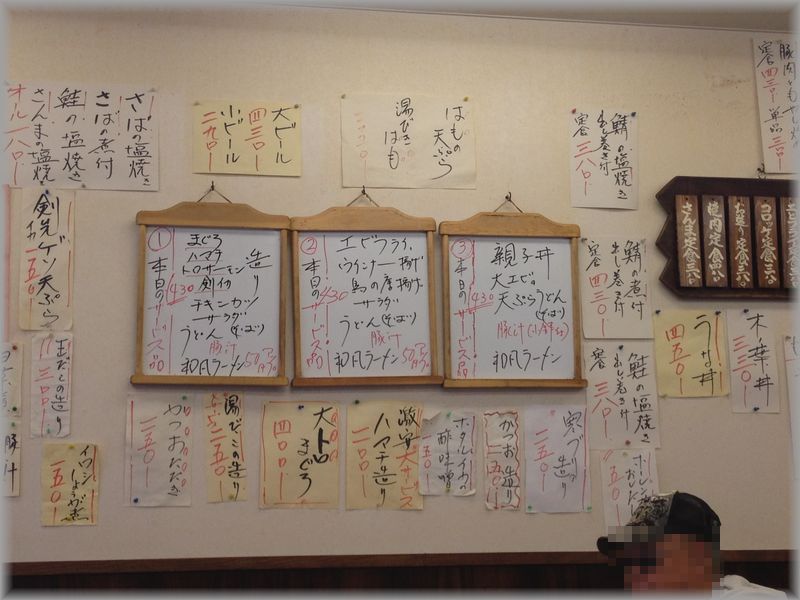 さばの塩焼き
さばの煮付
鮭の塩焼き
さんまの塩焼
オール一八〇
大ビール
四三〇
小ビール
二九〇
はもの
天ぷら
湯びき
はも
鯖の塩焼き
出し巻き付
定食 三八〇
豚肉
定食 四三〇
単品 三三〇
剣先ゲソ天ぷら
一五〇
①本日のサービス品
430
造り
まぐろ
ハマチ
トロサーモン
剣イカ
チキンカツ
サラダ
うどん(そば)
豚汁
和風ラーメン
50円
②本日のサービス品
430
エビフライ
ウインナー
サラダ
うどん(そば)
豚汁
和風ラーメン
50円
③本日のサービス品
430
親子丼
大エビ
天ぷらうどん
(そば)
豚汁
和風ラーメン
鯖の煮付
出し巻き付
定食 四三〇
コロッケ定食
焼肉定食
さんま定食
うな丼
四五〇
木葉丼
三三〇
鮭の塩焼き
出し巻き付
定食 三八〇
まだこの造り
三〇〇
イワシ
しょうが煮
一五〇
かつおたたき
二五〇
湯びきたこの造り
二五〇
大トロ
まぐろ
四〇〇
激安大サービス
ハマチ造り
一〇〇
ホタルイカの
酢味噌
一五〇
かつお造り
二五〇
造り
二五〇
ホーレン草
おひたし
一五〇
豚汁